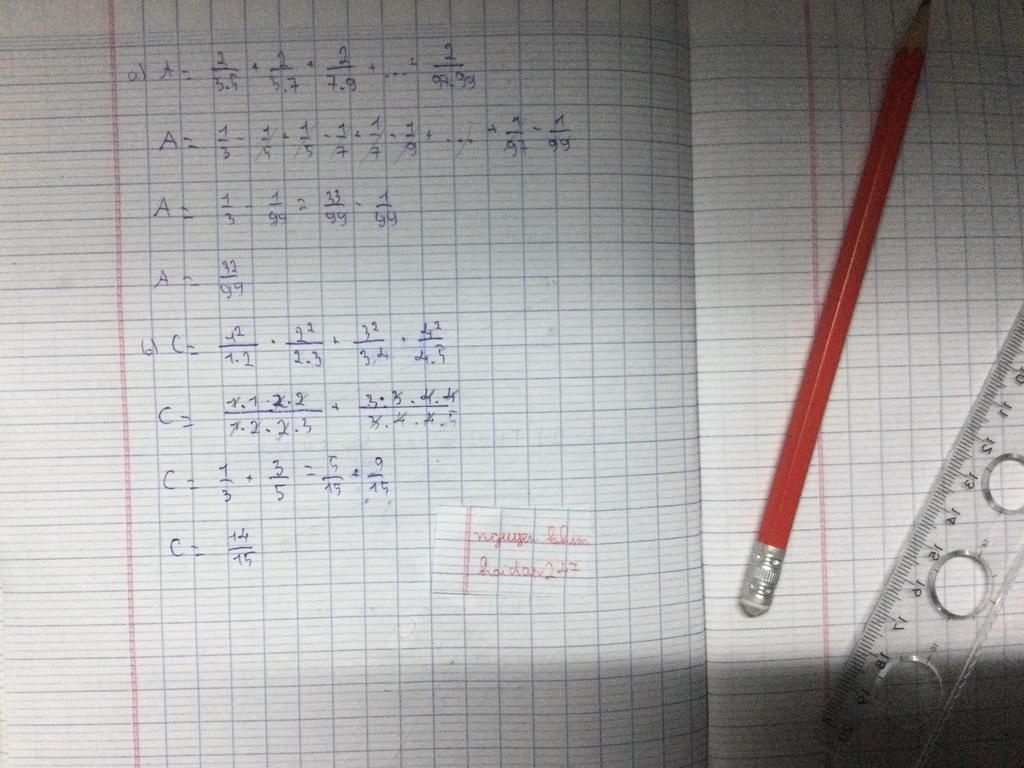 a) A = 2/3.5 + 2/5.7 + 2/7.9 + ... + 2/97.99
A = 1/3 - 1/5 + 1/5 - 1/7 + 1/7 - 1/9 + ... + 1/97 - 1/99
A = 1/3 - 1/99 = 33/99 - 1/99
A = 32/99
b) C = 1²/1.2 . 2²/2.3 + 3²/3.4 . 4²/4.5
C = 1.1.2.2/1.2.2.3 + 3.3.4.4/3.4.4.5
C = 1/3 + 3/5 = 5/15 + 9/15
C = 14/15
hoidap247
13
14
15
16
17
18